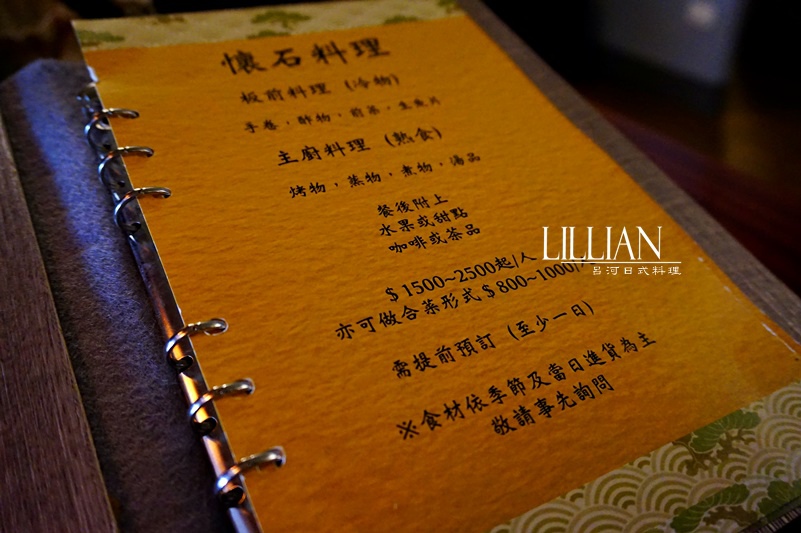 懷石料理
板前料理(冷物)
手卷,酢物,前菜,生魚片
主廚料理(熱食)
烤物,蒸物,煮物,湯品
餐後附上
水果或甜點
咖啡或茶品
$1500~2500起/人
亦可做合菜形式$800~1000/人
需提前預訂(至少一日)
※食材依季節及當日進貨為主
敬請事先詢問
LILLIAN
呂河日式料理